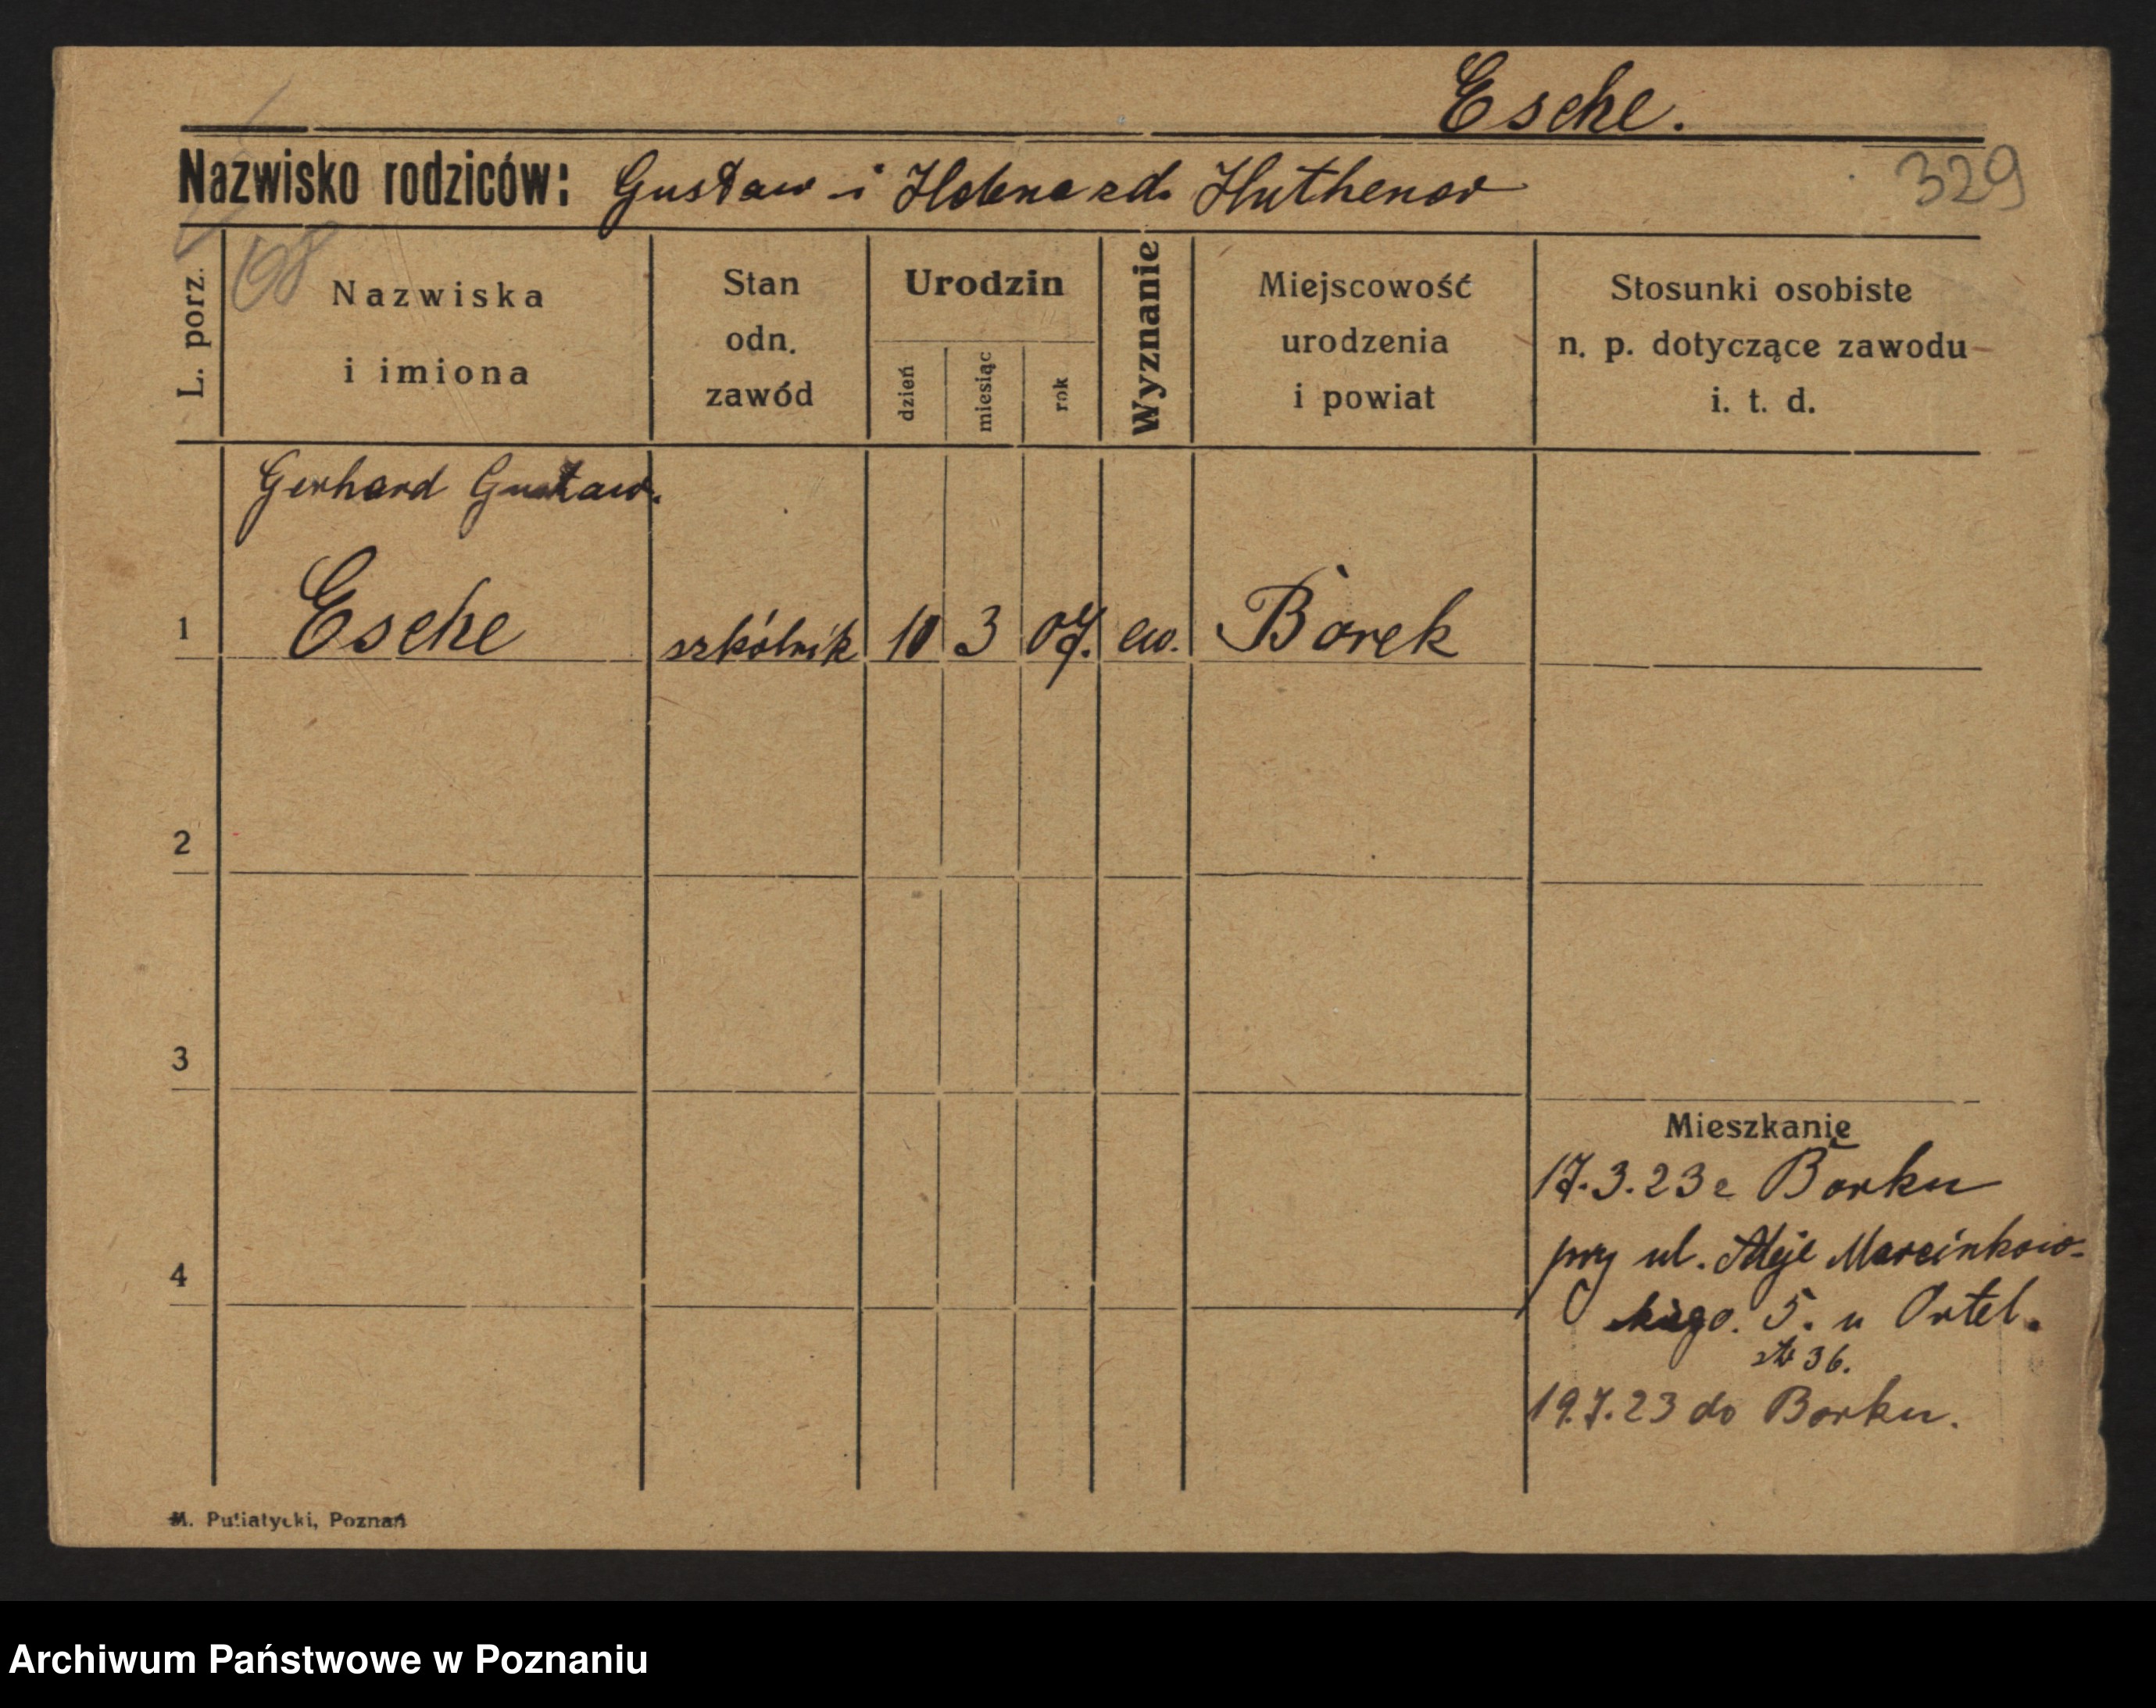 Esche.
Nazwisko rodziców: Gustaw i Helena zd. Huthener
329
68
L. porz.
Nazwiska
i imiona
Stan
odn.
zawód
Urodzin
dzień
miesiąc
rok
Wyznanie
Miejscowość
urodzenia
i powiat
Stosunki osobiste
n. p. dotyczące zawodu
i. t. d.
Gerhard Gustaw.
1 Esche szkólnik 10 3 07. ew. Borek
2
3
Mieszkanie
17.3.23 z Borku
przy ul. Aleje Marcinkow-
4
kiego. 5. u Ortel.
36.
19.7.23 do Borku.
M. Putiatycki, Poznań
Archiwum Państwowe w Poznaniu